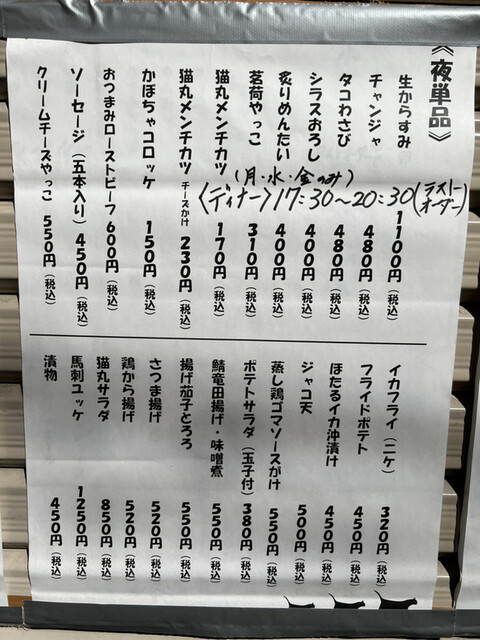 《夜単品》
生からすみ 1100円（税込）
チャンジャ 480円（税込）
タコわさび 480円（税込）
シラスおろし 400円（税込）
炙りめんたい 400円（税込）
茗荷やっこ 310円（税込）
猫丸メンチカツ 170円（税込）
猫丸メンチカツ チーズかけ 230円（税込）
かぼちゃコロッケ 150円（税込）
おつまみローストビーフ 600円（税込）
ソーセージ（五本入り） 450円（税込）
クリームチーズやっこ 550円（税込）
(月・水・金のみ)
〈ディナー〉17:30〜20:30(ラストオーダー)
イカフライ（二ケ） 320円（税込）
フライドポテト 450円（税込）
ほたるイカ沖漬け 450円（税込）
ジャコ天 500円（税込）
蒸し鶏ゴマソースがけ 550円（税込）
ポテトサラダ（玉子付） 380円（税込）
鯖竜田揚げ・味噌煮 550円（税込）
揚げ茄子とろろ 550円（税込）
さつま揚げ 520円（税込）
鶏から揚げ 520円（税込）
猫丸サラダ 850円（税込）
馬刺ユッケ 1250円（税込）
漬物 450円（税込）